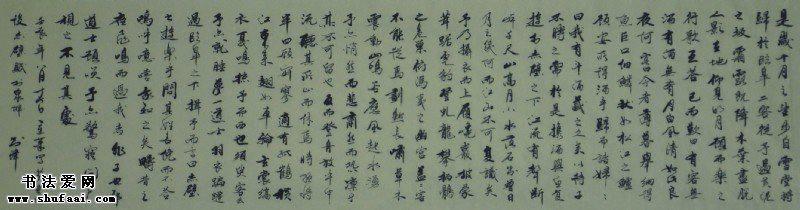 是歲十月之望步自雪堂將
歸於臨皋二客從予過黃泥
之坂霜露既降木葉盡脫
人影在地仰見明月顧而樂之
行歌互答已而歎曰有客無
酒有酒無肴月白風清如此良
夜何客曰今者薄暮舉網得
魚巨口細鱗狀如松江之鱸
顧安所得酒乎歸而謀諸婦
曰我有斗酒藏之久矣以待子
不時之需於是攜酒與魚復
遊於赤壁之下江流有聲斷
岸千尺山高月小水落石出曾日
月之幾何而江山不可復識矣
予乃攝衣而上履巉巖披蒙
茸踞虎豹登虬龍攀栖鶻
之危巢俯馮夷之幽宮蓋二客
不能從焉劃然長嘯草木
震動山鳴谷應風起水湧
予亦悄然而悲肅然而恐凜乎
其不可留也反而登舟放乎中
流聽其所止而休焉時夜將
半四顧寂寥適有孤鶴橫
江東來翅如車輪玄裳縞
衣戛然掠予舟而西也須臾客去
予亦就睡夢一道士羽衣蹁躚
過臨皋之下揖予而言曰赤壁
之遊樂乎問其姓名俛而不答
嗚呼噫嘻我知之矣疇昔之
夜飛鳴而過我者非子也耶
道士顧笑予亦驚寤開戶
視之不見其處
八月
後赤壁賦
书法爱网
www.shufaai.com